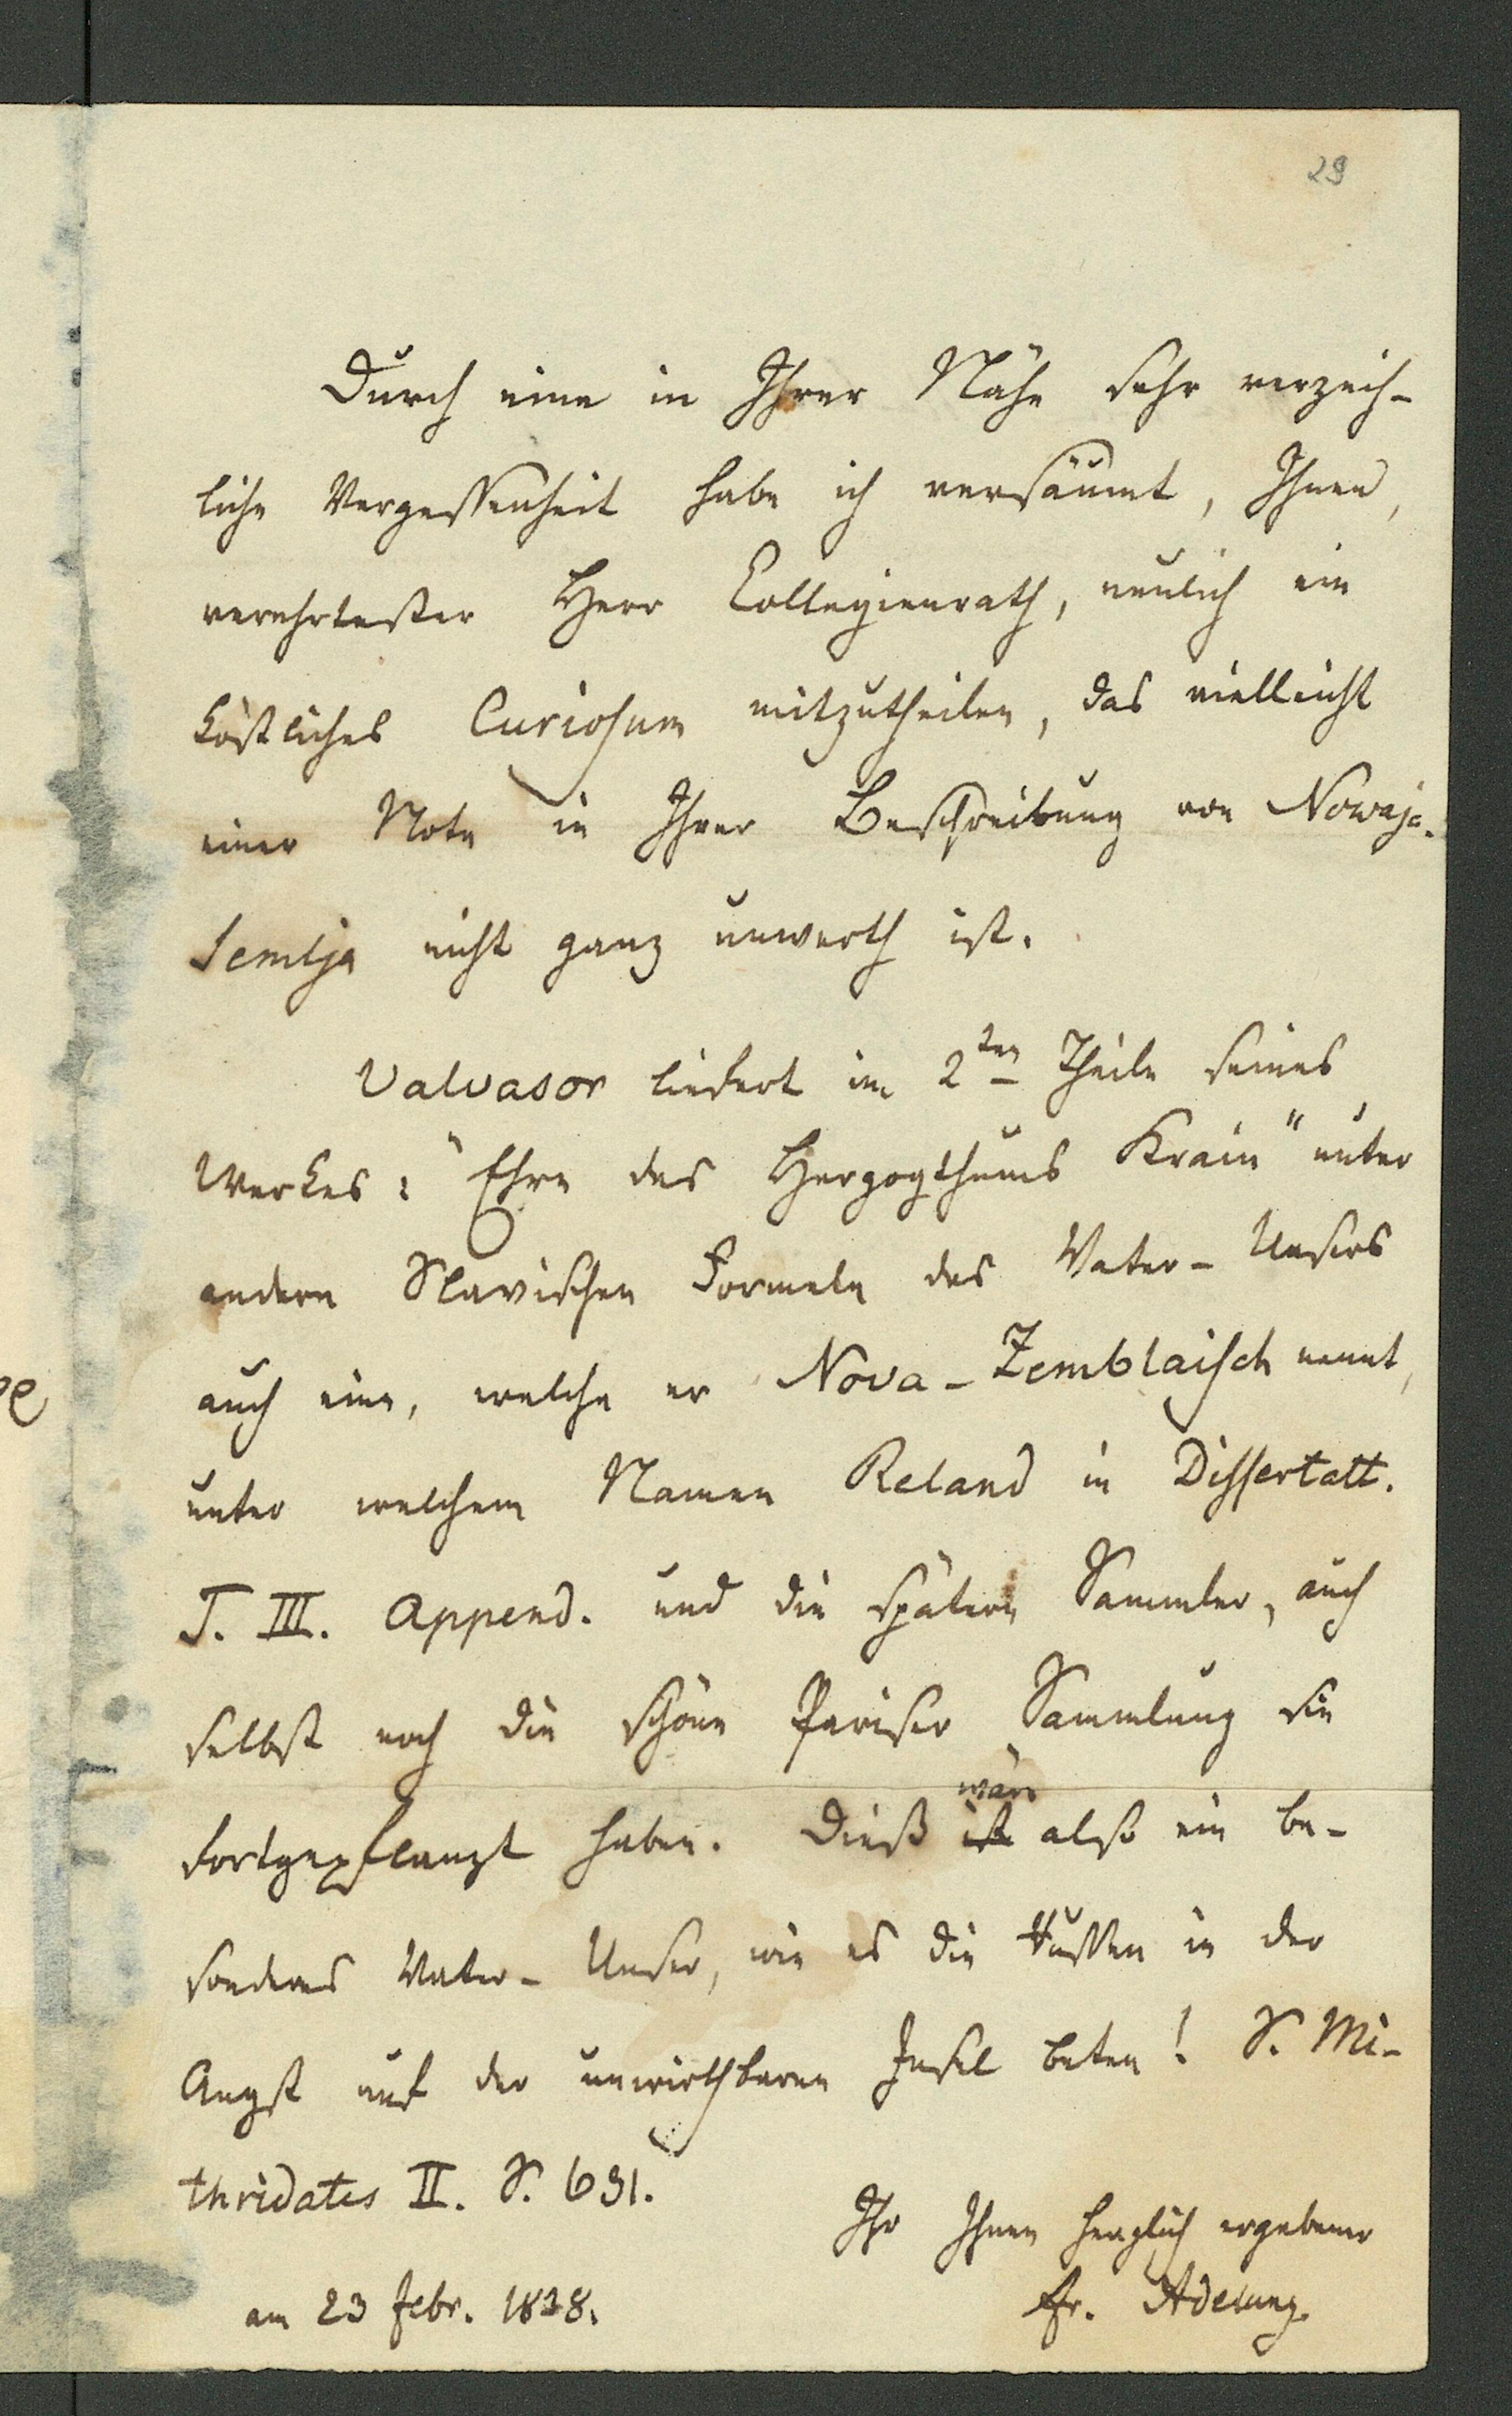 29
Durch eine in Ihrer Nähe sehr verzeih-
liche Vergessenheit habe ich versäumt, Ihnen,
verehrtester Herr Collegienrath, neulich ein
köstliches Curiosum mitzutheilen, das vielleicht
einer Note in Ihrer Beschreibung von Nowaja-
Semlja nicht ganz unwerth ist.
Valvasor liefert im 2ten Theile seines
Werkes: "Ehre des Herzogthums Krain" unter
andern Slavischen Formeln des Vater-Unsers
auch eine, welche er Nova-Zemblaisch nennt,
unter welchem Namen Reland in Dissertatt.
T. III. Append. und die spätern Sammler, auch
selbst noch die schöne Pariser Sammlung sie
fortgepflanzt haben. Dieß ist wäre also ein be-
sonderes Vater-Unser, wie es die Russen in der
Angst auf der unwirthbaren Insel beten! S. Mi-
thridates II. S. 631.
Ihr Ihnen herzlich ergebener
Fr. Adelung.
am 23 Febr. 1838.